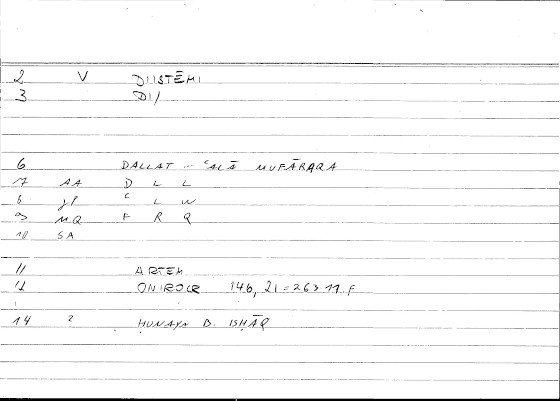 2 V DIISTĒMI
3 DI/
6 DALLAT ... ʿALĀ MUFĀRAQA
7 AA D L L
8 JP ʿ L W
9 MQ F R Q
10 SA
11 ARTEM
12 ONIROCR 146, 21 = 263 11. F
14 ? ḤUNAYN B. ISḤĀQ